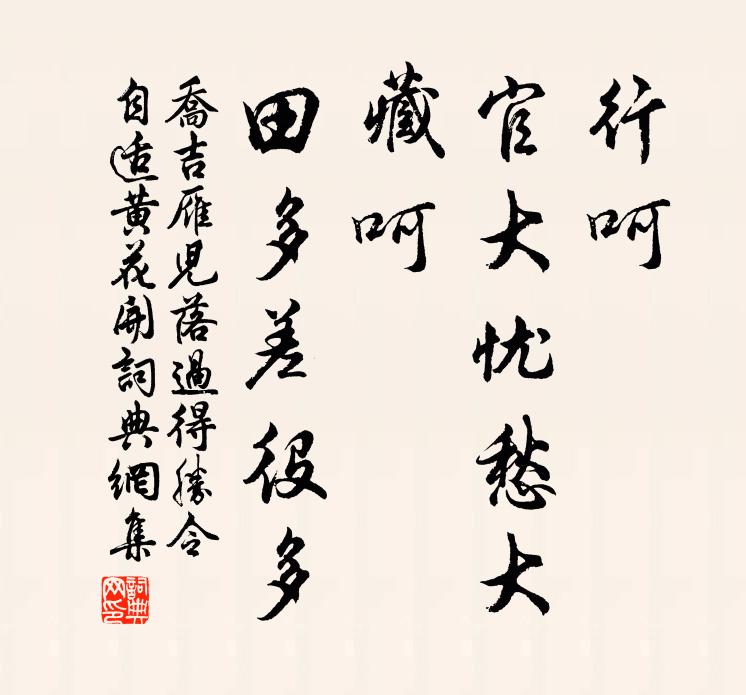 行呵
官大忧愁大
藏呵
田多差役多
喬吉雁児落過得勝令
自适黄花開詞典網集
詞典
网印